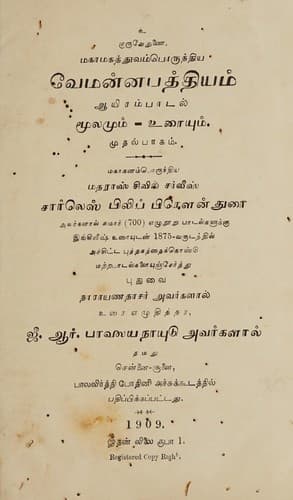 உ
குருவேதுணை.
மகாமகத்துவம்பொருந்திய
வேமன்னபத்தியம்
ஆயிரம்பாடல்
மூலமும் - உரையும்.
முதல்பாகம்.
மகாகனம்பொருந்திய
மதராஸ் சிவில் சர்வீஸ்
சார்லெஸ் பிலிப் பிரௌன்துரை
அவர்களால் சுமார் (700) எழுநூறு பாடல்களுக்கு
இங்கிலீஷ் உரையுடன் 1875-வருடத்தில்
அச்சிட்ட புத்தகத்தைக்கொண்டு
மற்றபாடல்களையுஞ்சேர்த்து
புதுவை
நாராயணதாசர் அவர்களால்
உரை எழுதித்தர,
ஜீ. ஆர். பாலைய நாயுடு அவர்களால்
தமது
சென்னை-சூளை,
பாலவிர்த்தி போதினி அச்சுக்கூடத்தில்
பதிப்பிக்கப்பட்டது.
1909.
இதன் விலை ரூபா 1.
Registered Copy Right.